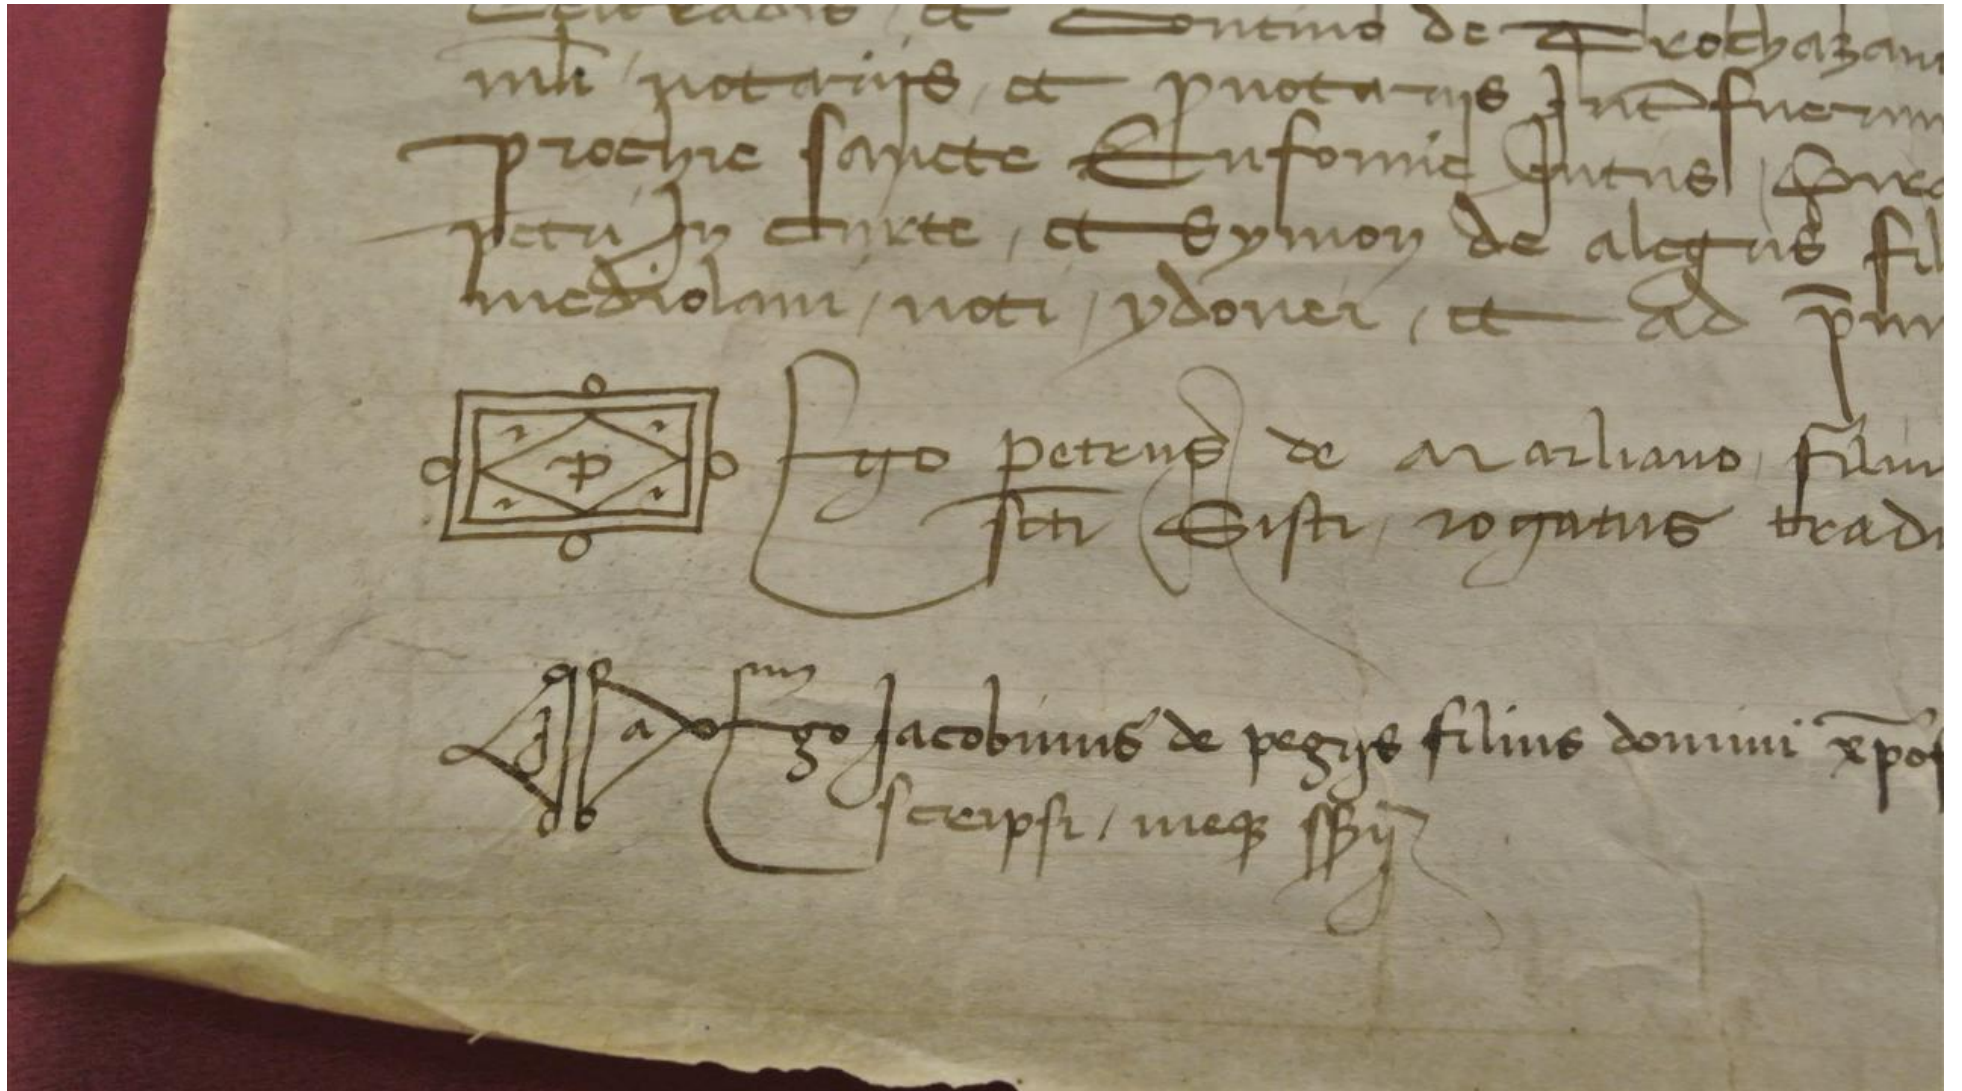 et Contino de
notariis, et pronotariis Int fuerunt
prochie sancte Eufomie Intus,
petri In curte, et Symon de alegus fil
mediolani, noti, ydonei, et ad
P
Ego petrus de Marliano, filiu
scti Sisti, rogatus tradi
J a
Ego Jacobinus de pegijs filius domini xpof
scripsi, meq ssbij